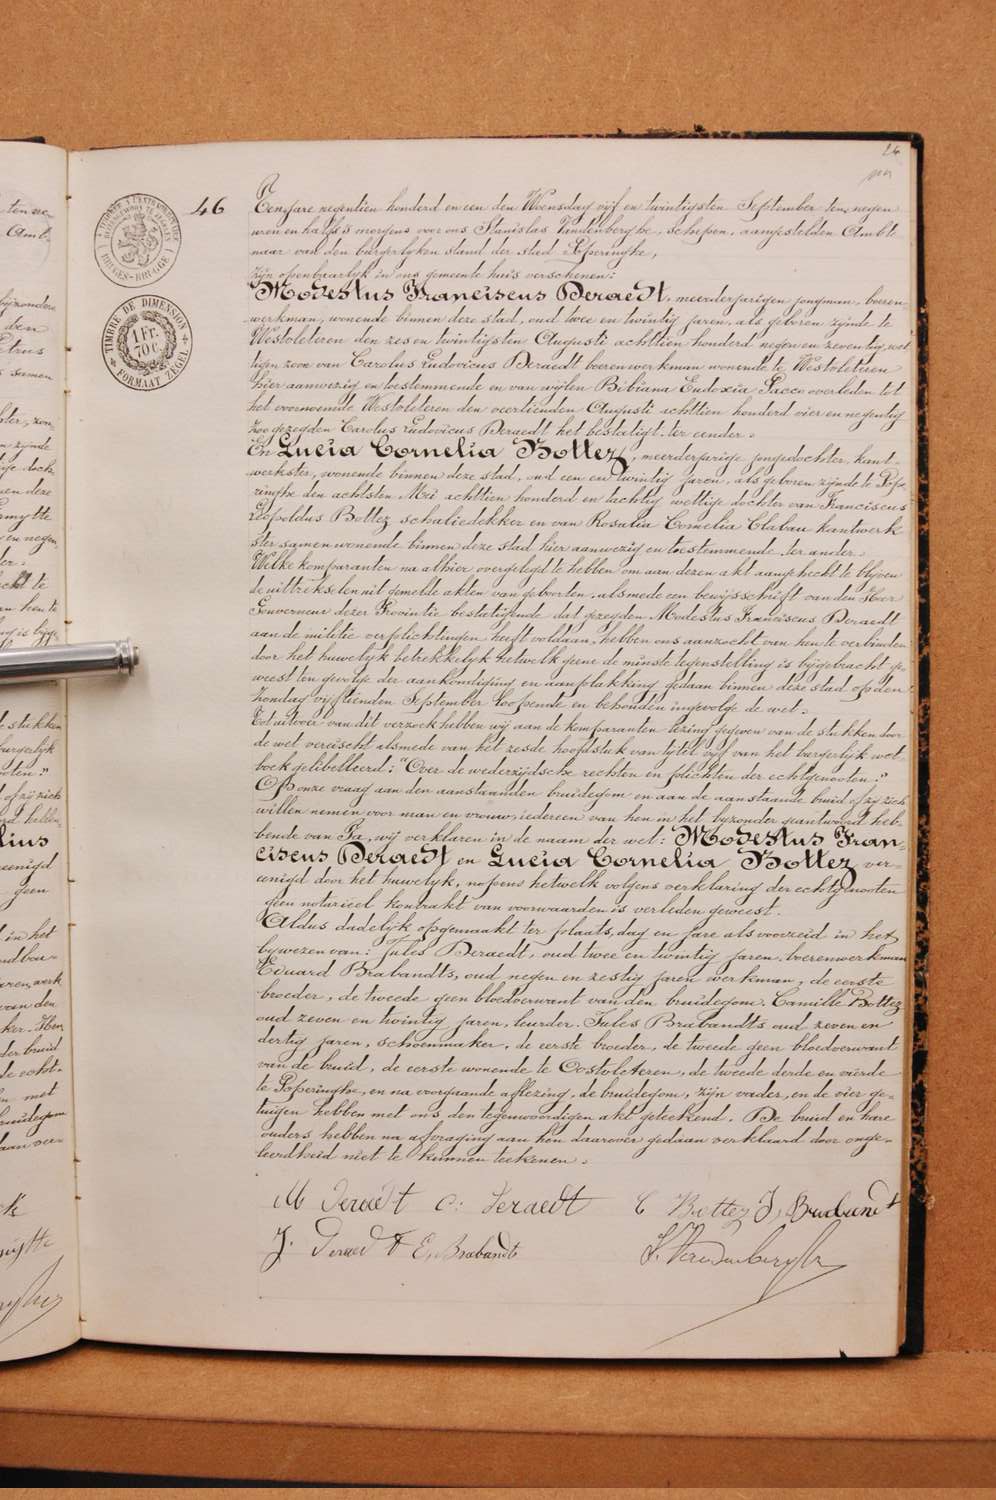 24
46
TIMBRE DE DIMENSION
1 Fr.
70 c.
FORMAAT ZEGEL
BRUGES-BRUGGE
Ten Jare negentien honderd en een den Woensdag vijf en twintigsten September ten negen
uren en half 's morgens voor ons Stanislas Vandenberghe, schepen, aangestelden Ambte
naar van den burgerlyken stand der stad Poperinghe,
zyn openbaarlyk in ons gemeente huis verschenen:
Modestus Franciscus Deraedt, meerderjarigen jongman, boeren-
werkman, wonende binnen deze stad, oud twee en twintig jaren, als geboren zynde te
Westvleteren den zes en twintigsten Augusti achttien honderd negen en zeventig, wet
tigen zoon van Carolus Ludovicus Deraedt boerenwerkman wonende te Westvleteren
hier aanwezig en toestemmende en van wijlen Bibiana Eudoxia Sacco overleden tot
het voornoemde Westvleteren den veertienden Augusti achttien honderd vier en negentig
zoo gezegden Carolus Ludovicus Deraedt het bestatigt. ter eender.
En Lucia Cornelia Bottez, meerderjarige jongedochter, kant-
werkster, wonende binnen deze stad, oud een en twintig jaren, als geboren zijnde te Pope
ringhe den achtsten Mei achttien honderd en tachtig wettige dochter van Franciscus
Leopoldus Bottez schaliedekker en van Rosalia Cornelia Clabau kantwerk
ster samen wonende binnen deze stad hier aanwezig en toestemmende ter ander.
Welke komparanten na alhier overgelegd te hebben om aan dezen akt aangehecht te blyven
de uittreksels uit gemelde akten van geboorten, alsmede een bewijsschrift van den Heer
Gouverneur dezer Provintie bestatigende dat gezegden Modestus Franciscus Deraedt
aan de militie verplichtingen heeft voldaan, hebben ons aanzocht van hen te verbinden
door het huwelyk betrekkelyk hetwelk geene de minste tegenstelling is bygebracht ge
weest ten gevolge der aankondiging en aanplakking gedaan binnen deze stad op den
Zondag vijftienden September loopende en behouden ingevolge de wet.
Tot uitvoer van dit verzoek hebben wij aan de komparanten lezing gegeven van de stukken door
de wet vereischt alsmede van het zesde hoofdstuk van tytel vijf van het burgerlyk wet-
boek gelibelleerd: "Over de wederzydsche rechten en plichten der echtgenooten."
Op onze vraag aan den aanstaanden bruidegom en aan de aanstaande bruid of zy zich
willen nemen voor man en vrouw, iedereen van hen in het byzonder geantwoord heb-
bende van Ja, wij verklaren in de naam der wet: Modestus Fran-
ciscus Deraedt en Lucia Cornelia Bottez ver-
eenigd door het huwelyk, nopens hetwelk volgens verklaring der echtgenooten
geen notarieel kontrakt van voorwaarden is verleden geweest.
Aldus dadelijk opgemaakt ter plaats, dag en jare als voorzeid in het
bywezen van: Jules Deraedt, oud twee en twintig jaren, boerenwerkman
Eduard Brabandts, oud negen en zestig jaren werkman, de eerste
broeder, de tweede geen bloedverwant van den bruidegom. Camille Bottez
oud zeven en twintig jaren, leurder, Jules Brabandts oud zeven en
dertig jaren, schoenmaker, de eerste broeder, de tweede geen bloedverwant
van de bruid, de eerste wonende te Oostvleteren, de tweede derde en vierde
te Poperinghe, en na voorgaande aflezing, de bruidegom, zijn vader, en de vier ge-
tuigen hebben met ons den tegenwoordigen akt geteekend. De bruid en hare
ouders hebben na afvraging aan hen daarover gedaan verklaard door onge-
leerdheid niet te kunnen teekenen.
M Deraedt C: Deraedt C Bottez J, Brabandt
J. Deraedt E, Brabandts S. Vandenberghe